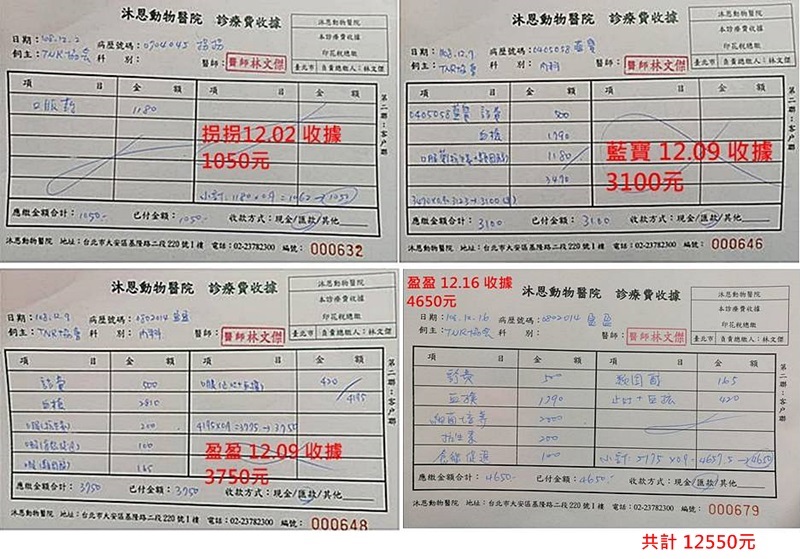 沐恩動物醫院 診療費收據
沐恩動物醫院
本診療費收據
印花稅總繳
臺北市 負責總繳人:林文傑
日期:108.12.2 病歷號碼:0904045 拐拐
飼主:TNR協會 科 別: 醫師:醫師林文傑
項 目 金 額 項 目 金 額
口服藥 1180
拐拐12.02 收據
1050元
小計:1180×0.9=1062→1050
應繳金額合計:1050- 已付金額:1050- 收款方式:現金/匯款/其他
沐恩動物醫院 地址:台北市大安區基隆路二段220號1樓 電話:02-23782300 編號:000632
沐恩動物醫院 診療費收據
沐恩動物醫院
本診療費收據
印花稅總繳
臺北市 負責總繳人:林文傑
日期:108.12.9 病歷號碼:0405058 藍寶
飼主:TNR協會 科 別:內科 醫師:醫師林文傑
項 目 金 額 項 目 金 額
0405058藍寶 診費 500
血檢 1790
1180
3470
藍寶 12.09 收據
3100元
應繳金額合計:3100 已付金額:3100 收款方式:現金/匯款/其他
沐恩動物醫院 地址:台北市大安區基隆路二段220號1樓 電話:02-23782300 編號:000646
沐恩動物醫院 診療費收據
沐恩動物醫院
本診療費收據
印花稅總繳
臺北市 負責總繳人:林文傑
日期:108.12.9 病歷號碼:0802014 盈盈
飼主:TNR協會 科 別:內科 醫師:醫師林文傑
項 目 金 額 項 目 金 額
診費 500 420
血檢 2810 4195
200 4195×0.9=3775→3750
100
165
盈盈 12.09 收據
3750元
應繳金額合計:3750 已付金額:3750 收款方式:現金/匯款/其他
沐恩動物醫院 地址:台北市大安區基隆路二段220號1樓 電話:02-23782300 編號:000648
盈盈 12.16 收據
4650元
沐恩動物醫院 診療費收據
沐恩動物醫院
本診療費收據
印花稅總繳
臺北市 負責總繳人:林文傑
日期:108.12.16 病歷號碼:0802014 盈盈
飼主:TNR協會 科 別: 醫師:醫師林文傑
項 目 金 額 項 目 金 額
診費 500 類固醇 165
血檢 1390 420
細菌培養
抗生素 200
100 小計:5175×0.9=4657.5→4650
應繳金額合計:4650- 已付金額:4650- 收款方式:現金/匯款/其他
沐恩動物醫院 地址:台北市大安區基隆路二段220號1樓 電話:02-23782300 編號:000679
共計 12550元